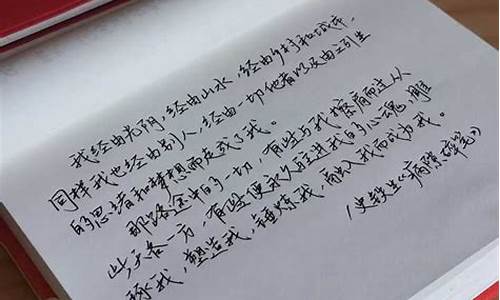 我经由光阴，经由山水，经由乡村和城市，
同样我也经由别人，经由一切他者以及由之引生
的思绪和梦想而走成了我。
那路途中的一切，有些与我擦肩而过从
此天各一方，有些便永久驻进我的心魂，雕
琢我，塑造我，锤炼我，融入我而成为我。
（史铁生《病隙碎笔》）